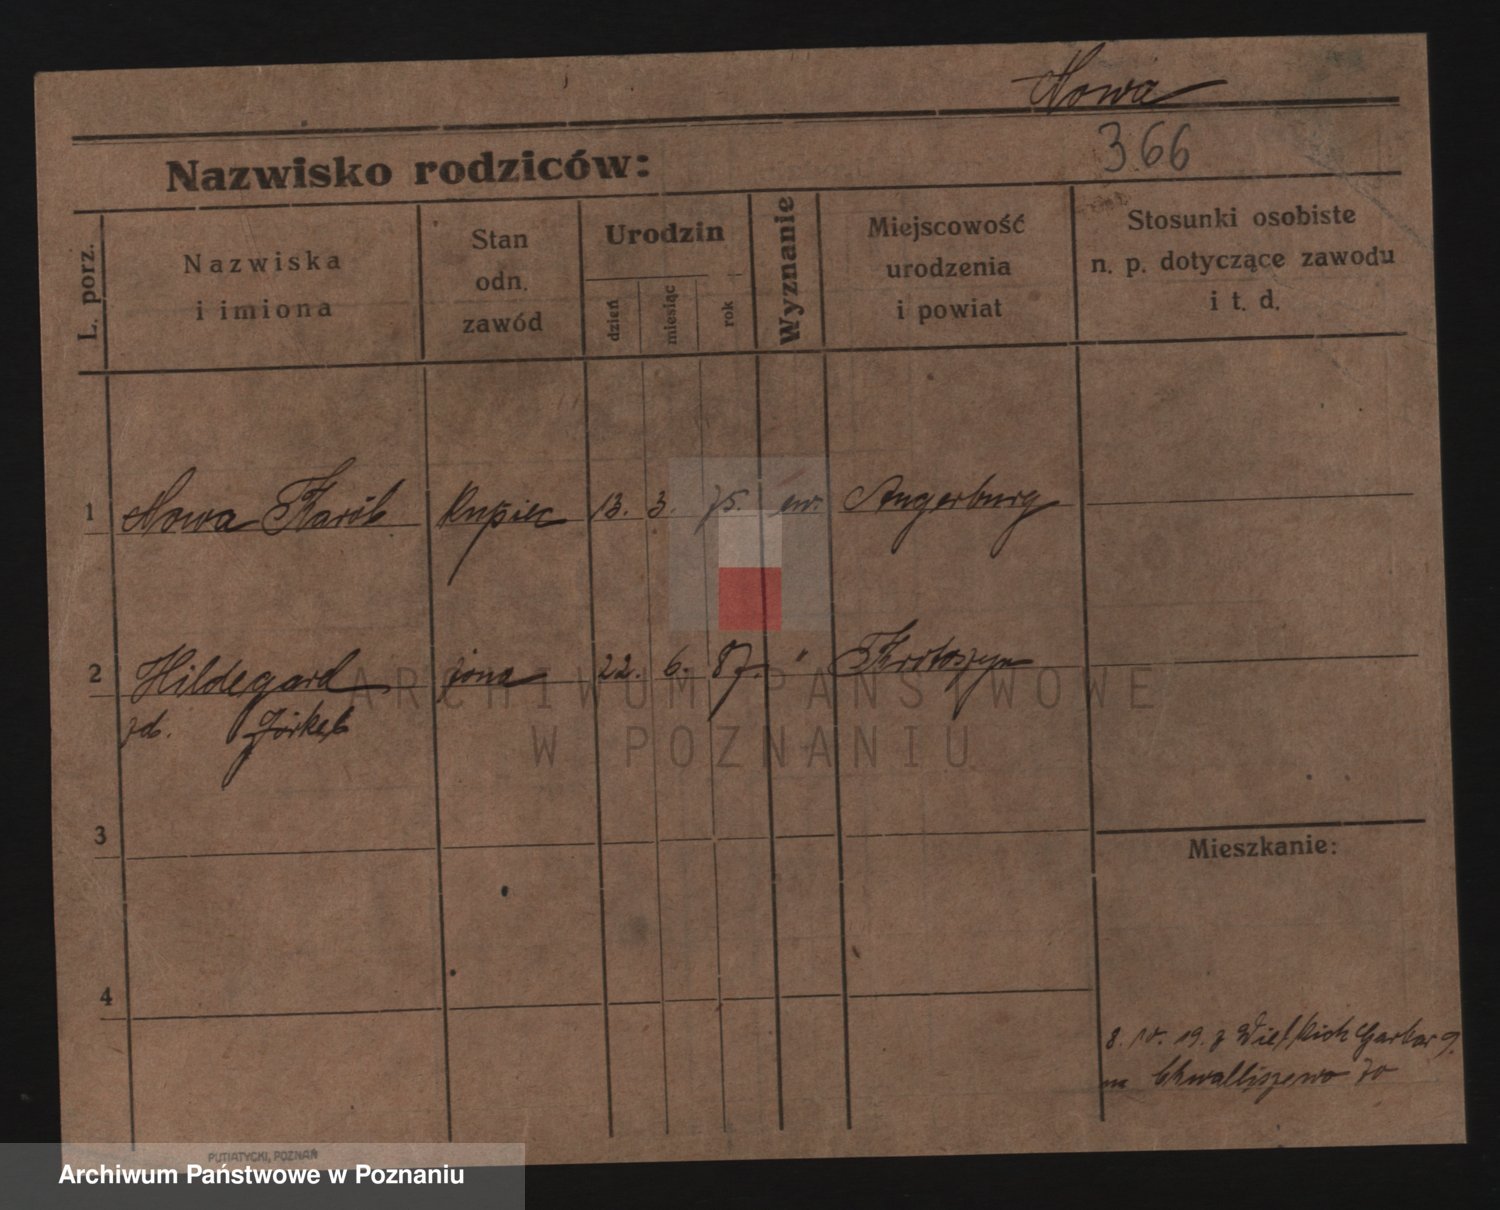 Nowa
366
Nazwisko rodziców:
L. porz.
Nazwiska
i imiona
Stan
odn.
zawód
Urodzin
dzień
miesiąc
rok
Wyznanie
Miejscowość
urodzenia
i powiat
Stosunki osobiste
n. p. dotyczące zawodu
i t. d.
1 Nowa Karól Kupiec 13. 3. 75. ew. Angerburg
2 Hildegard żona 22. 6. 87. " Krotoszyn
zd.
3
4
Mieszkanie:
8. 10. 19. z Wielkich Garbar 9.
na Chwalliszewo 70
ARCHIWUM PAŃSTWOWE
W POZNANIU
PUTIATYCKI, POZNAŃ
Archiwum Państwowe w Poznaniu